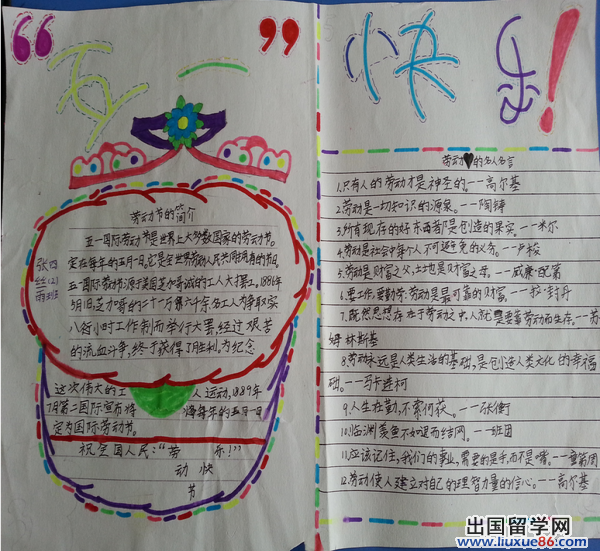 “五一”快乐！
劳动节的简介
五一国际劳动节是世界上大多数国家的劳动节。
定在每年的五月一日。它是全世界劳动人民共同拥有的节日。
五一国际劳动节源于美国芝加哥城的工人大罢工，1886年
5月1日，芝加哥的二十一万六千余名工人为争取实
八小时工作制而举行大罢，经过艰苦
的流血斗争，终于获得了胜利。为纪念
这次伟大的工人运动，1889年
7月第二国际宣布将每年的五月一日
定为国际劳动节。
祝全国人民：“劳动节快乐！”
张丝雨
四(2)班
劳动的名人名言
1.只有人的劳动才是神圣的。——高尔基
2.劳动是一切知识的源泉。——陶铸
3.所有现存的好东西都是创造的果实。——米尔
4.劳动是社会中每个人不可避免的义务。——卢梭
5.劳动是财富之父，土地是财富之母。——威廉·配第
6.要工作，要勤劳：劳动是最可靠的财富。——拉·封丹
7.既然思想存在于劳动之中，人就要靠劳动而生存。——苏
姆林斯基
8.劳动永远是人类生活的基础，是创造人类文化的幸福
础。——马卡连柯
9.人生在勤，不索何获。——张衡
10.临渊羡鱼不如退而结网。——班固
11.应该记住，我们的事业，需要的是手，而不是嘴。——童第周
12.劳动使人建立对自己的理智力量的信心。——高尔基
出国留学网
www.liuxue86.com